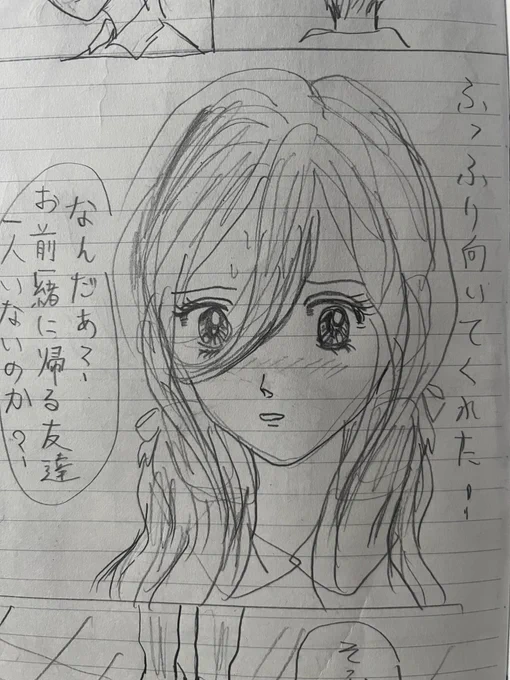 ふっふり向いてくれた!!
なんだぁ〜、
お前一緒に帰る友達
一人いないのか?、
そ